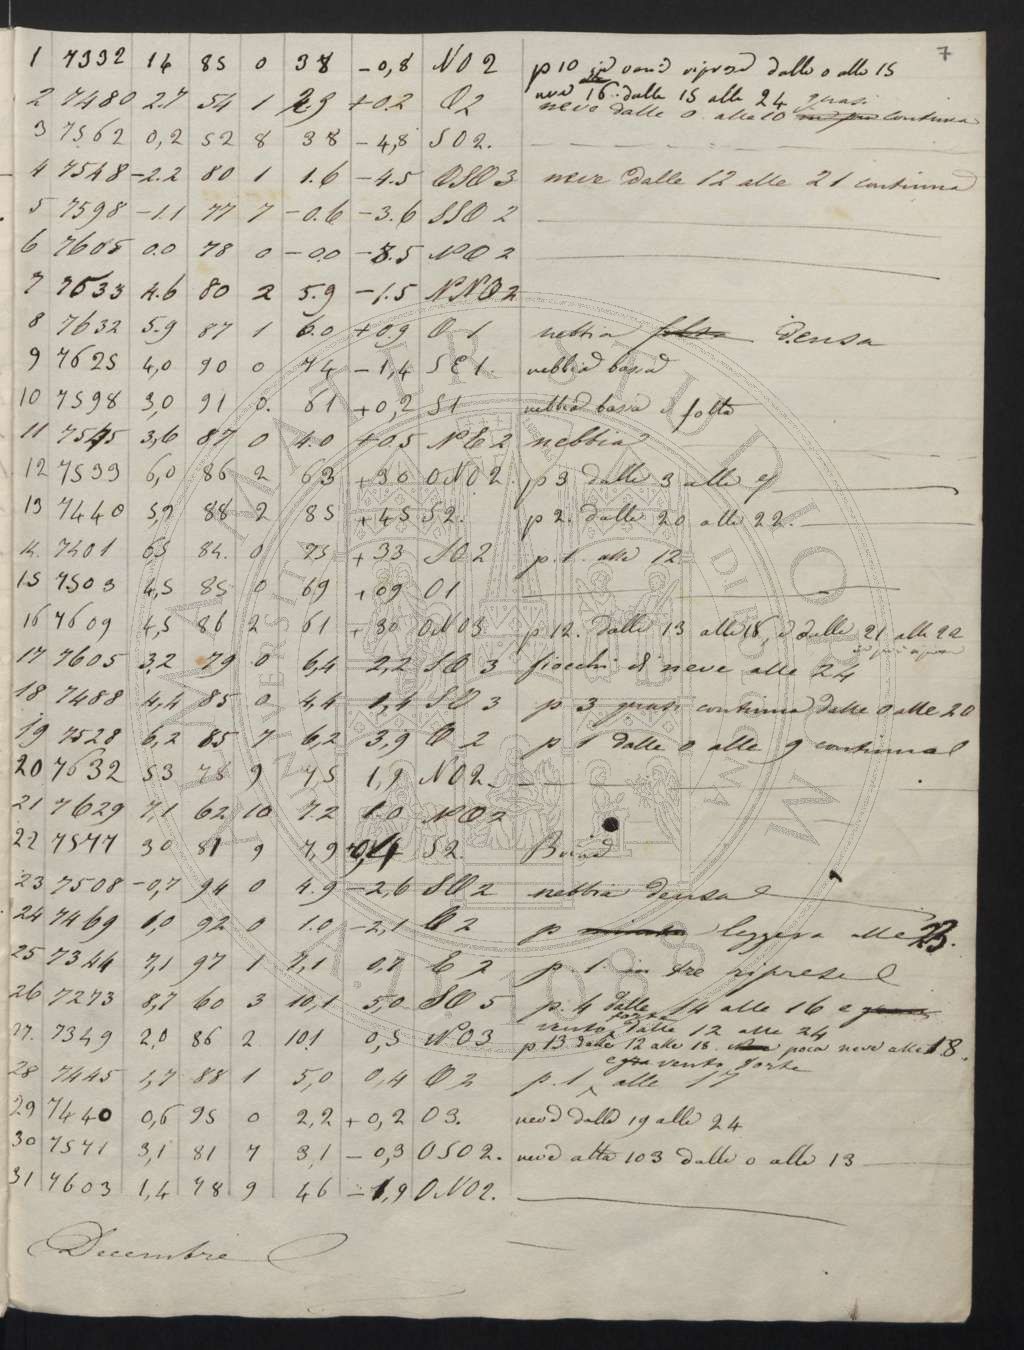 7
1 7332 14 85 0 38 -0,8 NO2 p10 in varie riprese dalle 0 alle 15
neve 16 dalle 15 alle 24
2 7480 2.7 54 1 2.9 +0.2 O2 neve dalle 0 alle 10 quasi continua
3 7562 0,2 52 8 38 -4,8 SO2.
4 7548 -2.2 80 1 1.6 -4.5 OSO3 neve dalle 12 alle 21 continua
5 7598 -1.1 77 7 -0.6 -3.6 SSO2
6 7605 0.0 78 0 -0.0 -3.5 NO2
7 7533 4.6 80 2 5.9 -1.5 NNO2
8 7632 5.9 87 1 6.0 +0.9 O1 nebbia folta densa
9 7625 4,0 90 0 74 -1,4 SE1. nebbia bassa
10 7598 3,0 91 0. 61 +0,2 S1 nebbia bassa e folta
11 7545 3,6 87 0 4.0 +0.5 NE2 nebbia
12 7533 6,0 86 2 63 +30 ONO2. p3 dalle 3 alle 9
13 7440 5,9 88 2 85 +45 S2. p2. dalle 20 alle 22.
14. 7401 65 84. 0 75 +33 SO2 p.1. alle 12
15 7503 4,5 85 0 69 +09 O1
16 7609 4,5 86 2 61 +30 ONO3 p12. dalle 13 alle 18, e dalle 21 alle 22
in più riprese
17 7605 3,2 79 0 6,4 2,2 SO3 fiocchi di neve alle 24
18 7488 4,4 85 0 4,4 1,4 SO3 p3 quasi continua dalle 0 alle 20
19 7528 6,2 85 7 6,2 3,9 O2 p1 dalle 0 alle 9 continua
20 7632 53 75 9 7,5 1,9 NO2.
21 7629 7,1 62 10 7.2 1.0 NO2
22 7577 30 81 9 7,9 0,4 S2. Brina
23 7508 -0,7 94 0 4.9 -2,6 SO2 nebbia densa
24 7469 1,0 92 0 1.0 -2,1 O2 p minuta leggera alle 23.
25 7344 7,1 97 1 7,1 0,7 E2 p1. in tre riprese
26 7273 8,7 60 3 10,1 5,0 SO5 p.4 dalle 14 alle 16 e
vento forte dalle 12 alle 24
27. 7349 2,0 86 2 10.1 0,5 NO3 p13 dalle 12 alle 18. poca neve alle 18.
28 7445 1,7 88 1 5,0 0,4 O2 p.1 alle 17 e vento forte
29 7440 0,6 95 0 2,2 +0,2 O3. neve dalle 19 alle 24
30 7571 3,1 81 7 3,1 -0,3 OSO2. neve alta 103 dalle 0 alle 13
31 7603 1,4 78 9 46 -1,9 ONO2.
Decembre
ALMA MATER STUDIORUM
UNIVERSITA DI BOLOGNA
A.D. 1088